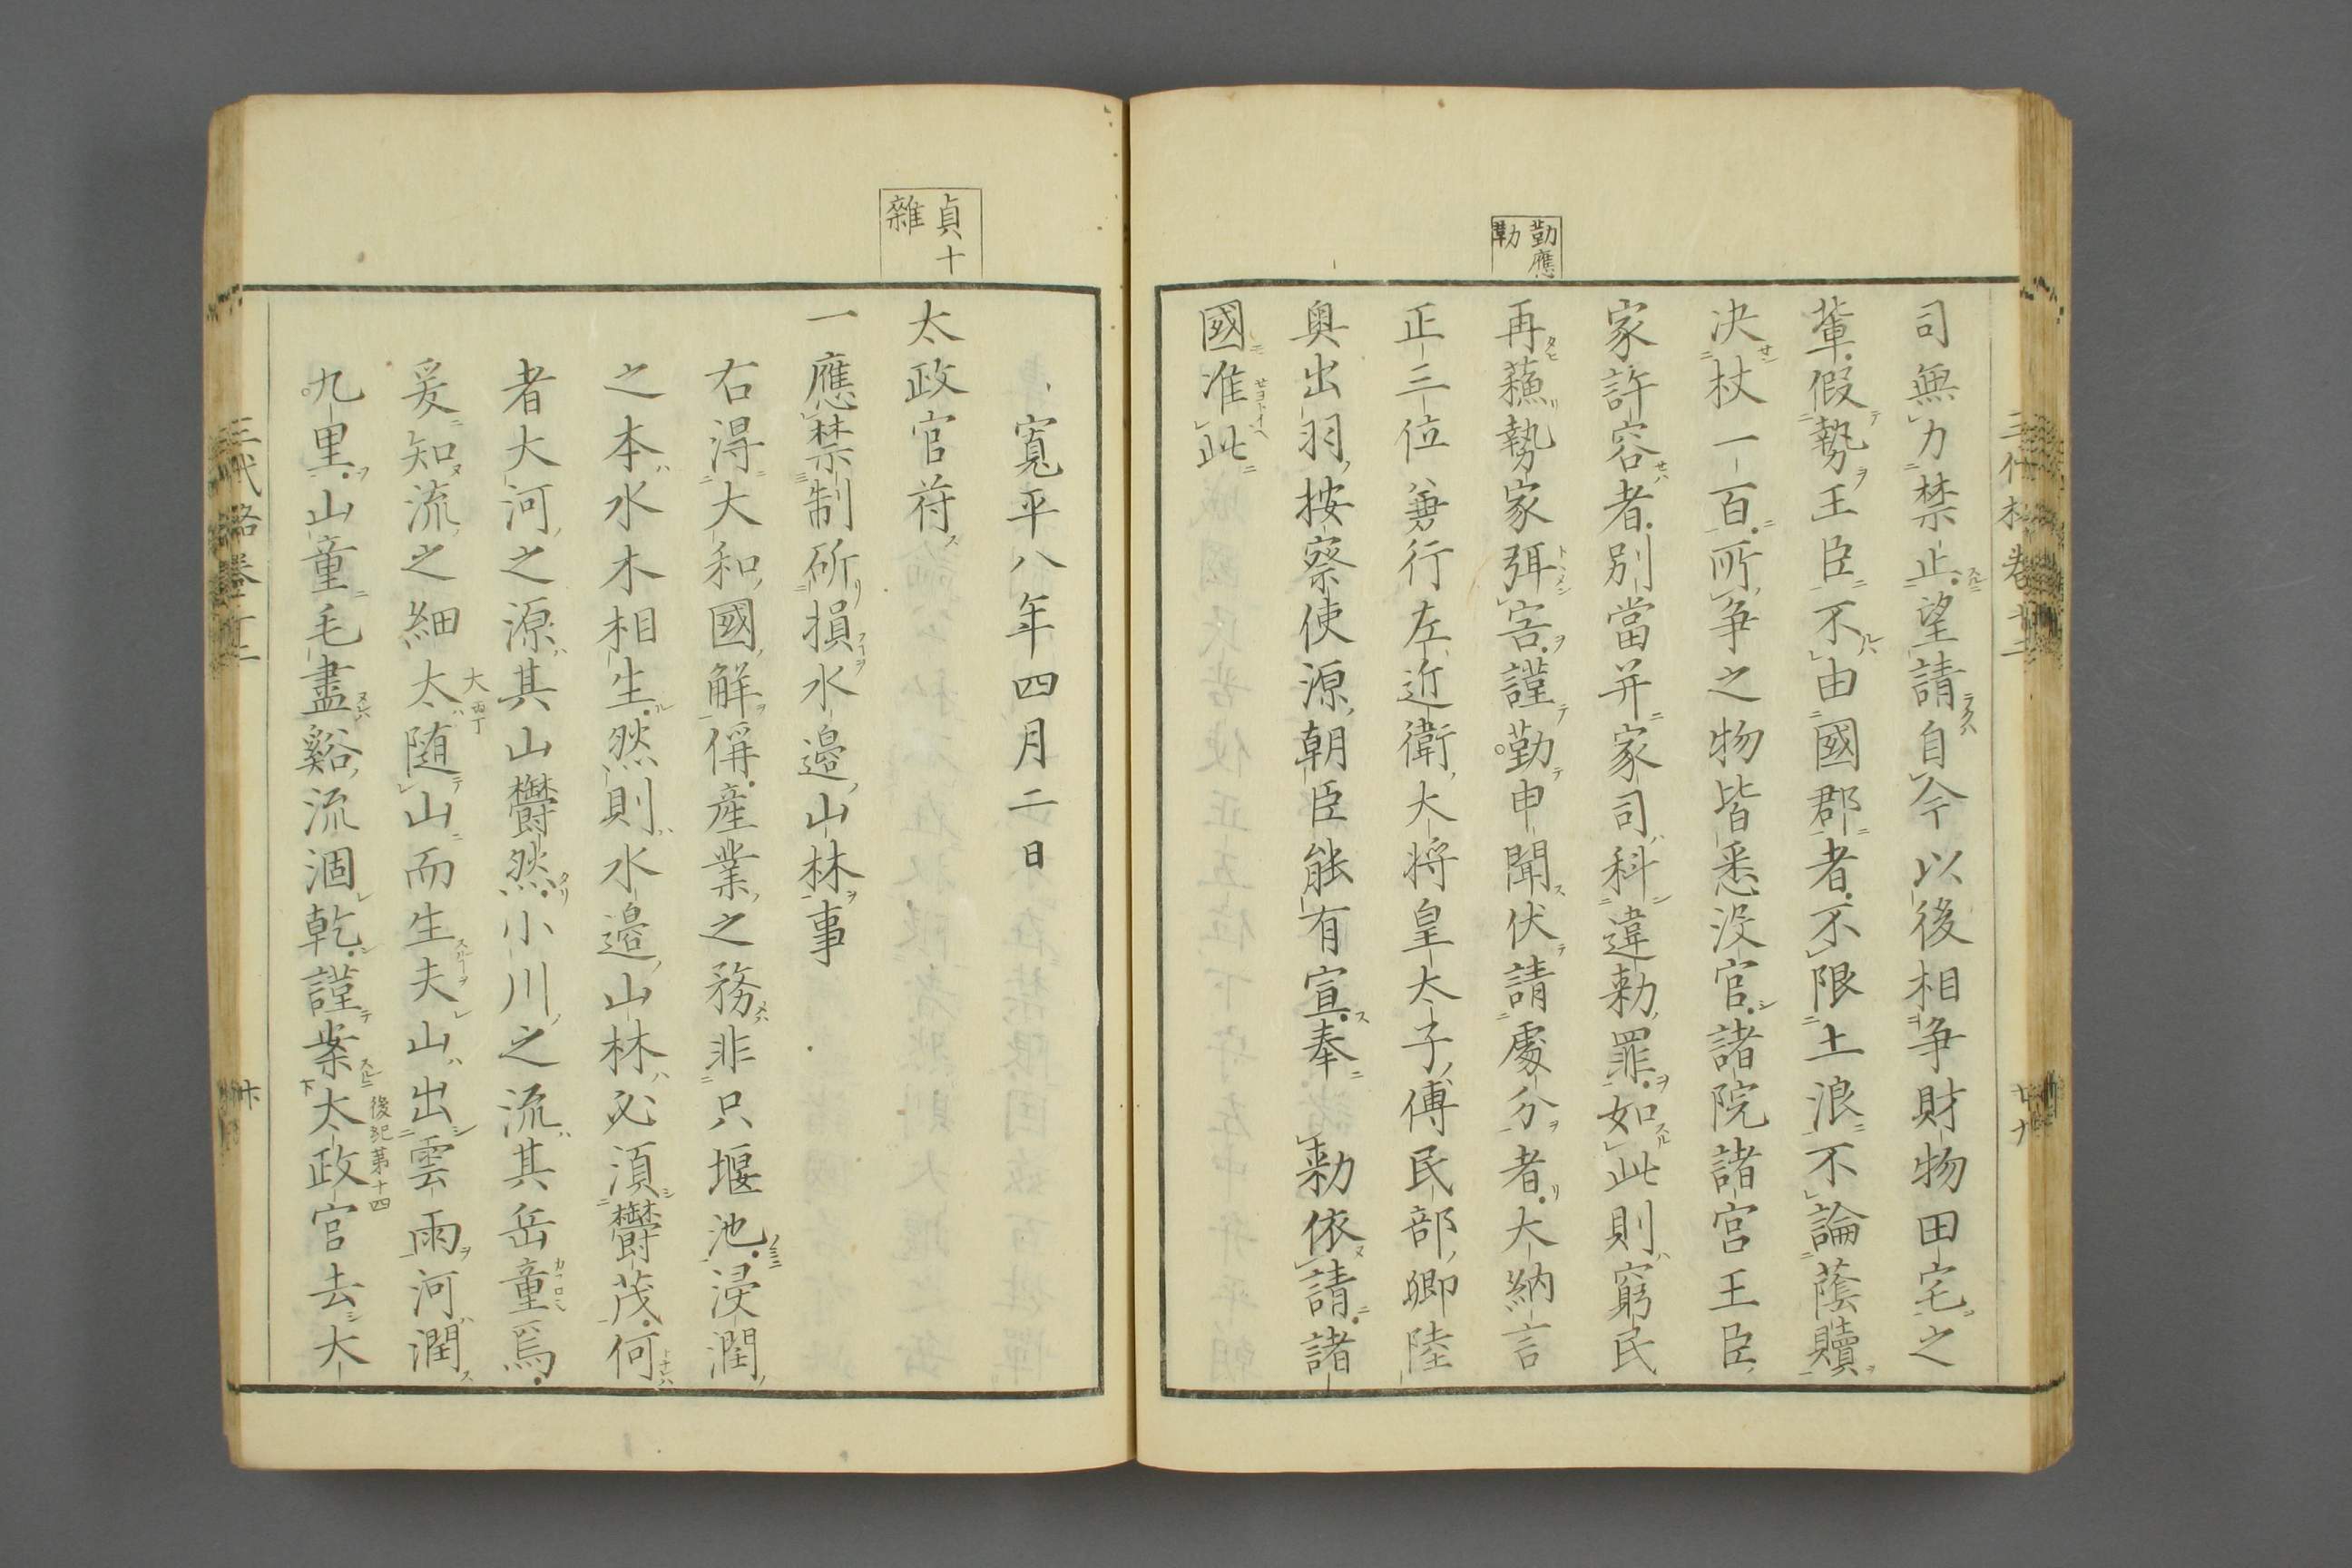 司無力禁止望請自今以後相争財物田宅之
輩假勢王臣不由國郡者不限土浪不論蔭贖
决杖一百所争之物皆悉没官諸院諸宮王臣
家許容者別當并家司科違勅罪如此則窮民
再蘓勢家弭害謹勤申聞伏請處分者大納言
正三位兼行左近衛大将皇太子傅民部卿陸
奥出羽按察使源朝臣能有宣奉　勅依請諸
國准此
勤應
勒
寬平八年四月二日
太政官符
一應禁制斫損水邉山林事
右得大和國解偁産業之務非只堰池浸潤
之本水木相生然則水邉山林必湏欝茂何
者大河之源其山欝然小川之流其岳童焉
爰知流之細太随山而生夫山出雲雨河潤
九里山童毛盡谿流涸乾謹案太政官去大
貞十
雜
後紀第十四
三代格巻十二